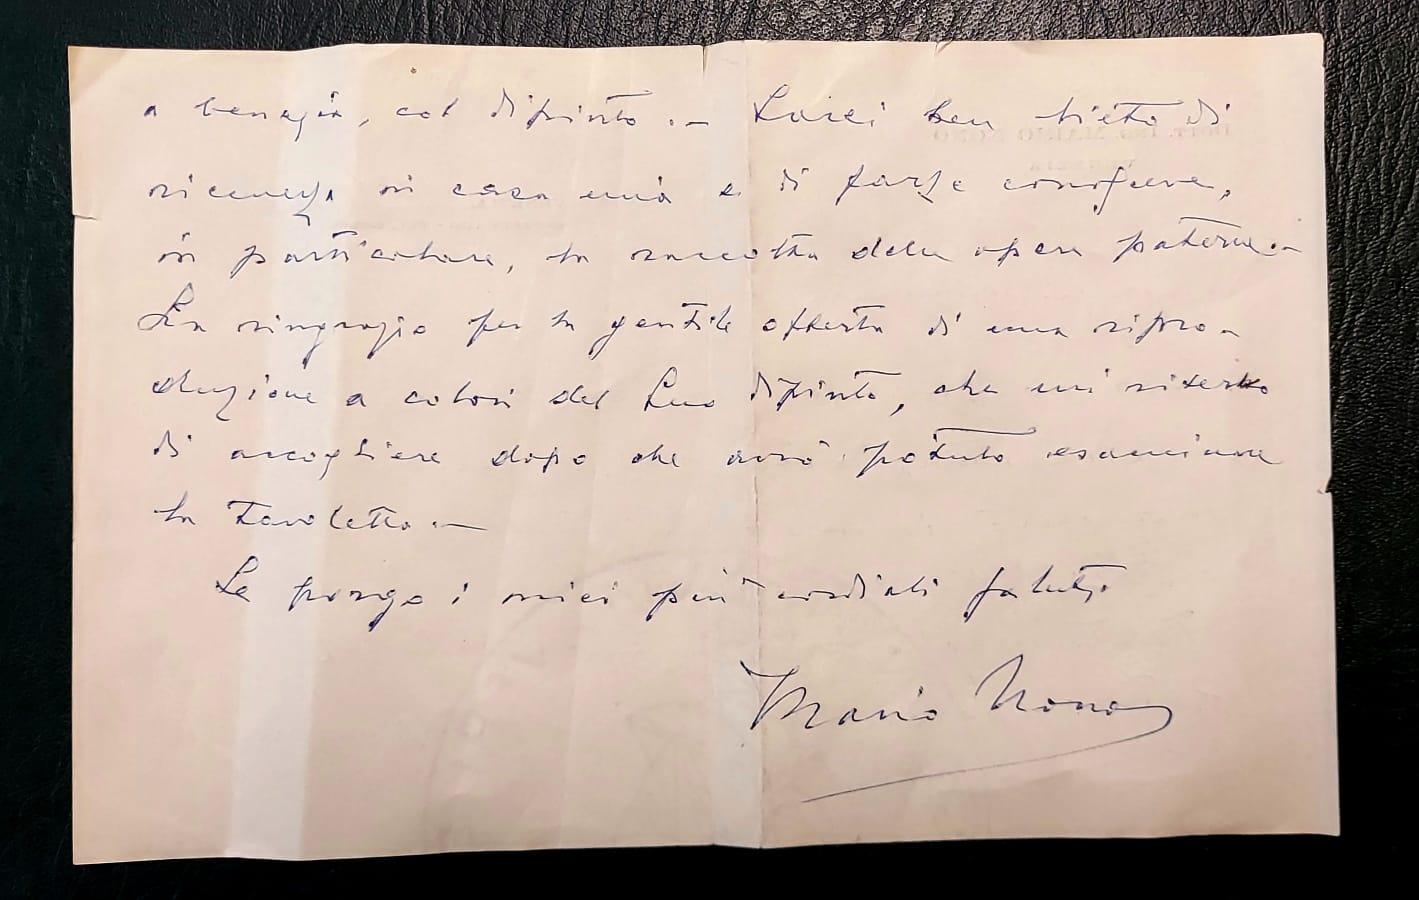 a Venezia, col dipinto. - Sarei ben lieto di
riceverla in casa mia e di farLe conoscere,
in particolare, la raccolta delle opere paterne. -
La ringrazio per la gentile offerta di una ripro-
duzione a colori del Suo dipinto, che mi riserbo
di accogliere dopo che avrò potuto esaminare
la tavoletta. -
Le porgo i miei più cordiali saluti
Mario Nono
DOTT. ING. MARIO NONO
VENEZIA